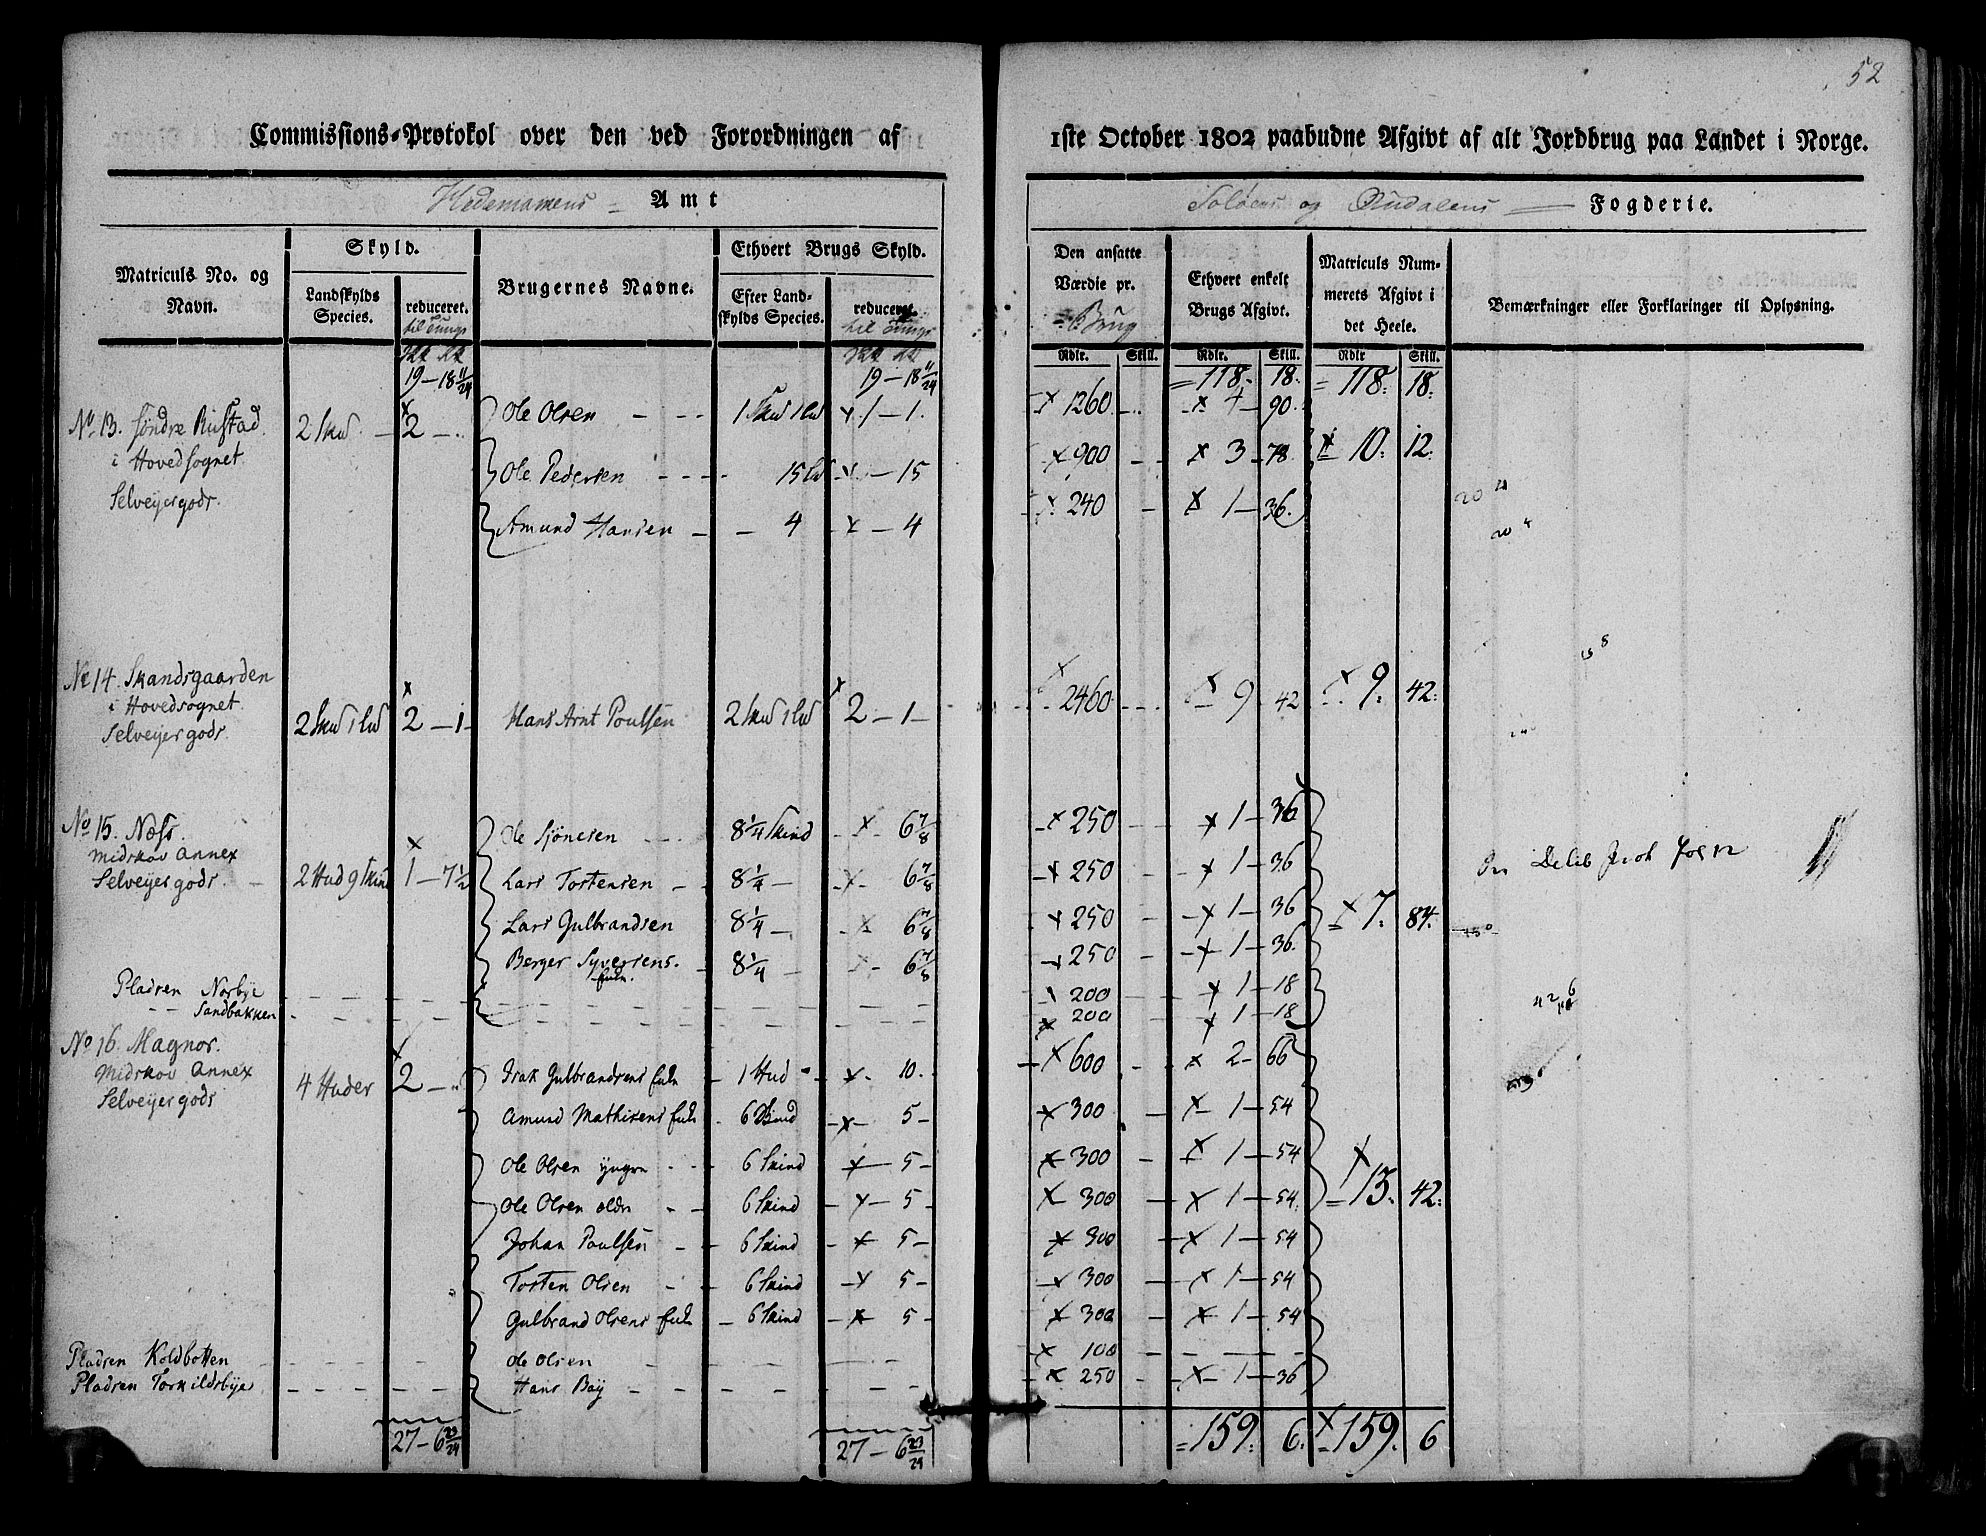 52
Commissions-Protokol over den ved Forordningen af 1ste October 1802 paabudne Afgivt af alt Jordbrug paa Landet i Norge.
Hedemarkens = Amt
Soløers og Oudalens — Fogderie.
Matriculs No. og Navn.
Skyld.
Landskylds Species.
reduceret. til Tunge
Brugernes Navne.
Ethvert Brugs Skyld.
Efter Landskylds Species.
reduceret. til Tunge
Den ansatte Værdie pr. Brug
Ethvert enkelt Brugs Afgivt.
Matriculs Nummerets Afgivt i det Heele.
Bemærkninger eller Forklaringer til Oplysning.
Rdlr. Skill. Rdlr. Skill. Rdlr Skill.
19 — 18 11/24 19 — 18 11/24 = 118. 18. = 118. 18.
No 13. Søndre Rustad 2 Skd — 2 — Ole Olsen — 1 Skd 1 Ld x 1 — 1. x 1260 x 4 — 90.
i Hovedsognet Ole Pedersen — 15 Ld x — 15 x 900 x 3 — 78 x 10. 12.
Selveyergods. Amund Hansen — 4 x — 4 x 240 x 1 — 36.
No 14. Skandsgaarden
i Hovedsognet 2 Skd 1 Ld 2 — 1 — Hans Arnt Poulsen 2 Skd 1 Ld x 2 — 1 — x 2460 x 9 42 x 9. 42.
Selveyergods
No 15. Næss. Ole Sjønesen 8 1/4 Skind x 6 7/8 x 250 x 1 — 36
Midskov Annex
Selveyergods. 2 Hud 9 Skind 1 — 7 1/2 Lars Tostensen 8 1/4 — x 6 7/8 x 250 x 1 — 36
Lars Gulbrandsen 8 1/4 — x 6 7/8 x 250 x 1 — 36 x 7. 84.
Berger Syversens. 8 1/4 — x 6 7/8 x 250 x 1 — 36
Enke.
Pladsen Norbye x 200 x 1 — 18
— — Sandbakken x 200 x 1 — 18
No 16. Magnor.
Midskov Annex 4 Huder 2 — Isak Gulbrandsens Enke 1 Hud x 10. x 600 x 2 — 66
Selveyergods Amund Mathisens Enke 6 Skind x 5 — x 300 x 1 — 54
Ole Olsen yngre 6 Skind x 5 — x 300 x 1 — 54
Ole Olsen ældre 6 Skind x 5 — x 300 x 1 — 54. x 13. 42.
Johan Poulsen 6 Skind x 5 — x 300 x 1 — 54
Tosten Olsen 6 Skind x 5 — x 300 x 1 — 54
Gulbrand Olsens Enke 6 Skind x 5 — x 300 x 1 — 54
Pladsen Koldbotten Ole Olsen x 100
Pladsen Torkildsbye Hans Boÿ x 250 x 1 — 36
27 — 6 23/24 27 — 6 23/24 = 159. 6. x 159. 6